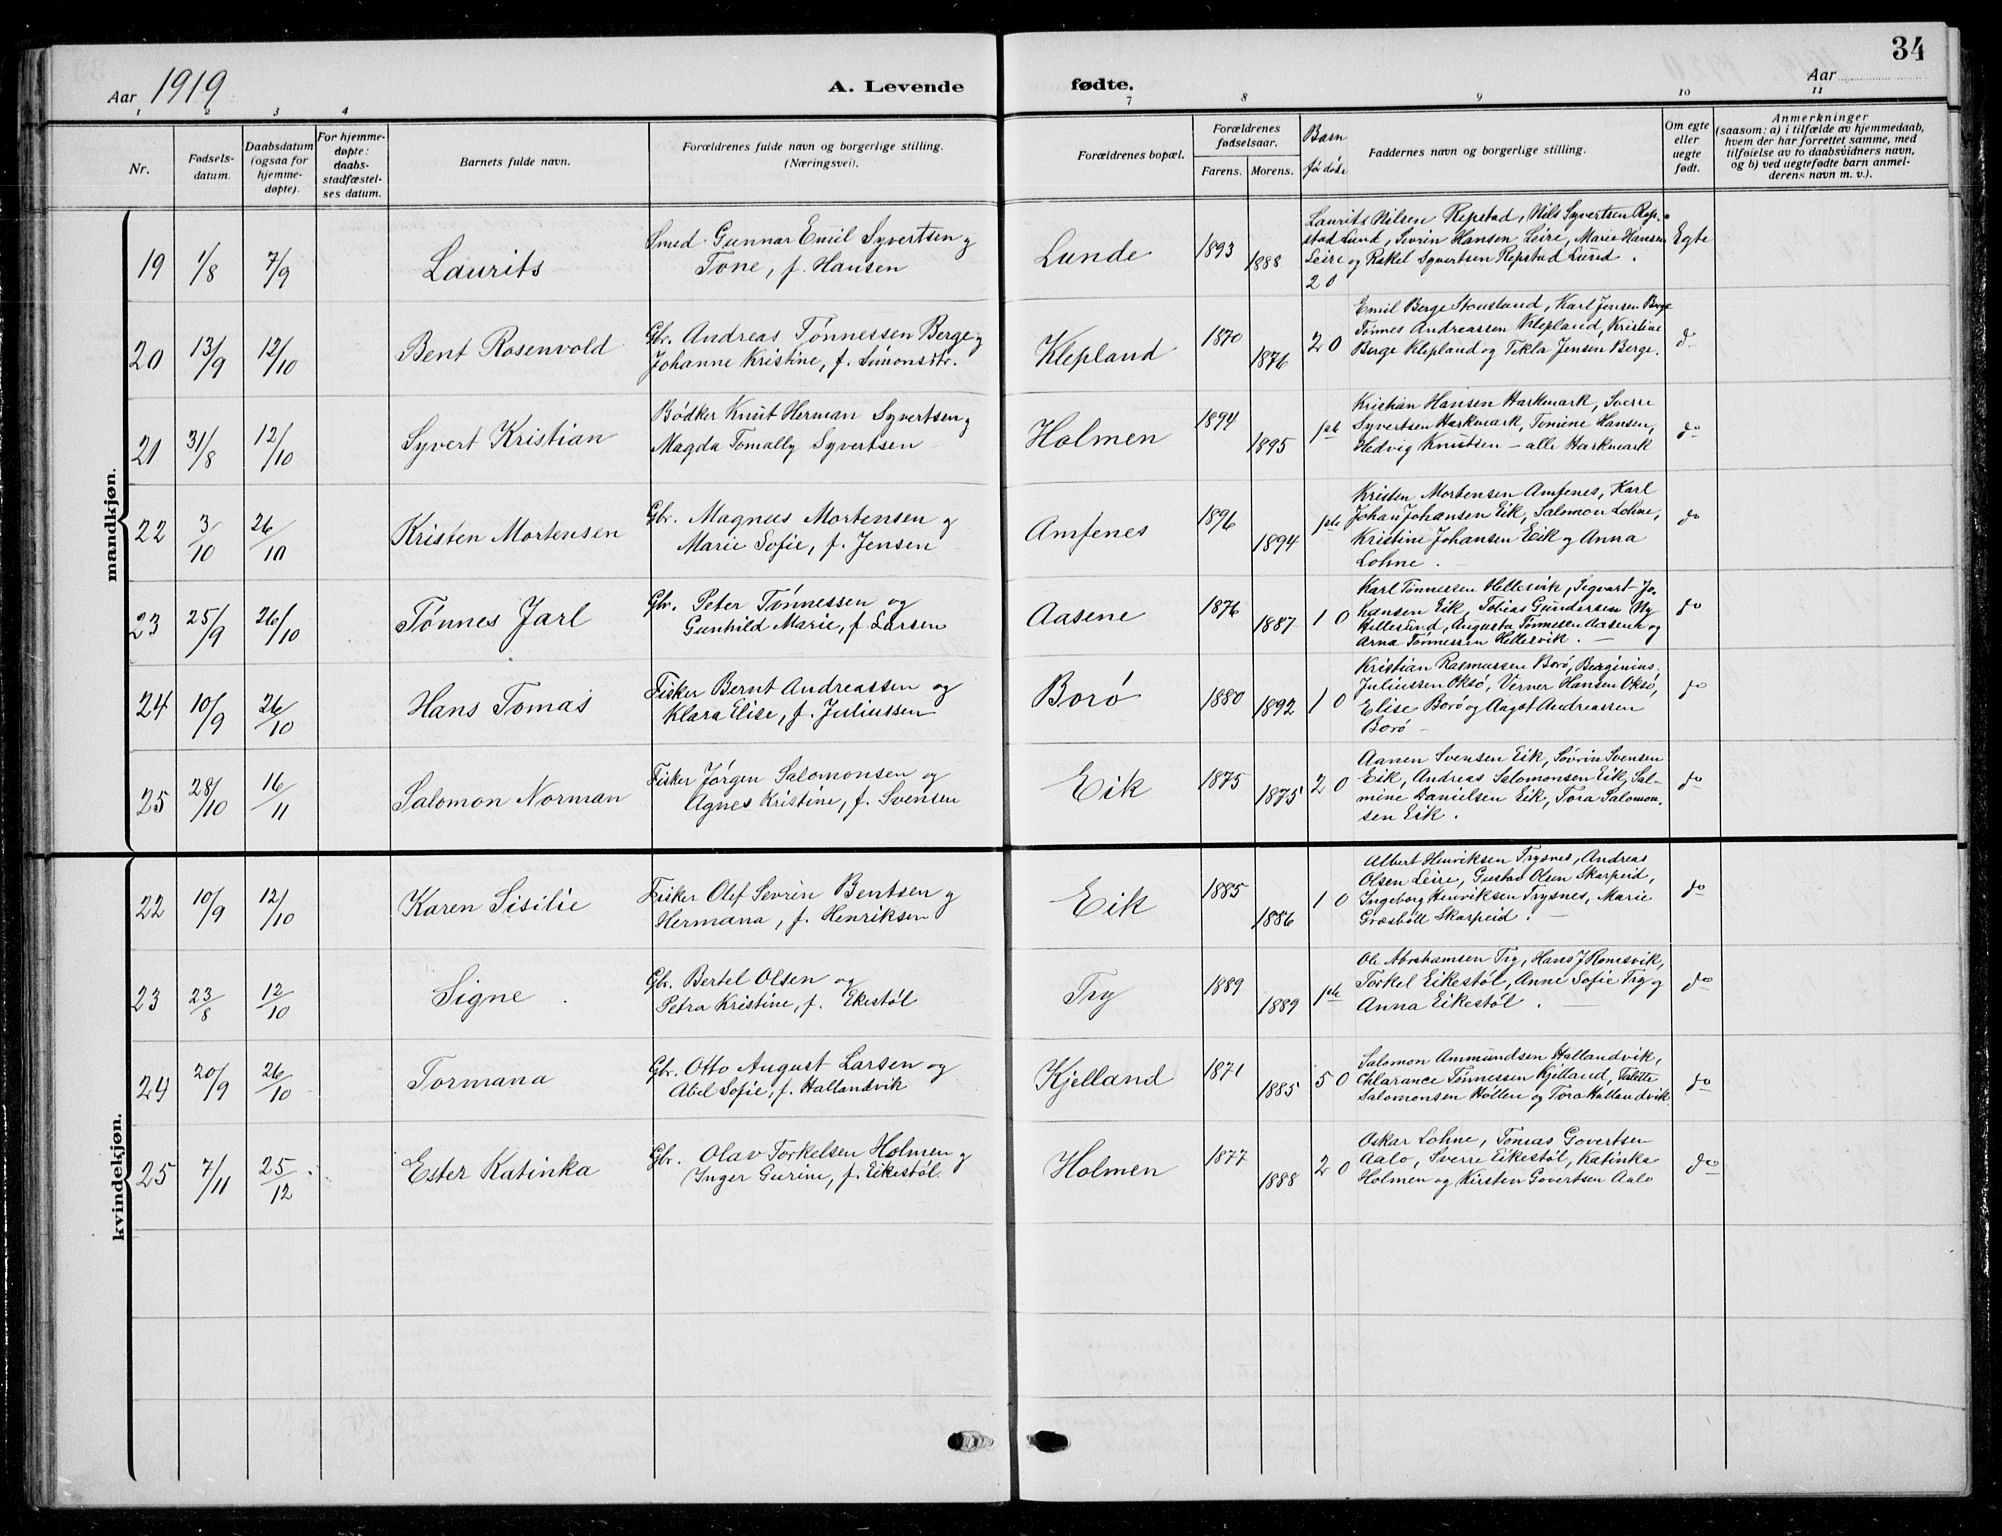 34
Aar 1919
A. Levende fødte.
Aar
1 2 3 4 7 8 9 10 11
Nr.
Fødselsdatum.
Daabsdatum (ogsaa for hjemmedøpte).
For hjemmedøpte: daabsstadfæstelses datum.
Barnets fulde navn.
Forældrenes fulde navn og borgerlige stilling. (Næringsvei).
Forældrenes bopæl.
Forældrenes fødselsaar.
Farens. Morens.
Barn før døde
Faddernes navn og borgerlige stilling.
Om egte eller uegte født.
Anmerkninger
(saasom: a) i tilfælde av hjemmedaab,
hvem der har forrettet samme, med
tilføielse av to daabsvidners navn,
og b) ved uegtefødte barn anmelderens navn m. v.).
mandkjøn.
19 1/8 7/9 Laurits
Smed Gunnar Emil Syvertsen og
Tone, f. Hansen
Lunde 1893 1888 2 0
Laurits Nilsen Repstad, Nils Syvertsen Rep-
stad Lund, Sevrin Hansen Leire, Marie Hansen
Leire og Rakel Syvertsen Repstad Lund.
Egte
20 13/9 12/10 Bent Rosenvold
Gbr. Andreas Tønnessen Berge og
Johanne Kristine, f. Simonsdtr.
Klepland 1870 1876 2 0
Emil Berge Stousland, Karl Jensen Berge
Tønnes Andreassen Klepland, Kristine
Berge Klepland og Tekla Jensen Berge.
do
21 31/8 12/10 Syvert Kristian
Bødker Knut Herman Syvertsen og
Magda Tomally Syvertsen
Holmen 1894 1895 1ste
Kristian Hansen Harkmark, Sverre
Syvertsen Harkmark, Tomine Hansen,
Hedvig Knutsen – alle Harkmark
do
22 3/10 26/10 Kristen Mortensen
Gbr. Magnus Mortensen og
Marie Sofie, f. Jensen
Amfenes 1896 1894 1ste
Kristen Mortensen Amfenes, Karl
Johan Johansen Eik, Salomon Lohne,
Kristine Johansen Eik og Anna
Lohne.
do
23 25/9 26/10 Tønnes Jarl
Gbr. Peter Tønnessen og
Gunhild Marie, f. Larsen
Aasene 1876 1887 1 0
Karl Tønnessen Hellesvik, Sigvart Jo-
hansen Eik, Tobias Gundersen Ny
Hellesund, Augusta Tønnessen Aasene og
Arna Tønnessen Hellesvik.
do
24 10/9 26/10 Hans Tomas
Fisker Bernt Andreassen og
Klara Elise, f. Juliussen
Borø 1880 1892 1 0
Kristian Rasmussen Borø, Berginius
Juliussen Oksø, Verner Hansen Oksø,
Elise Borø og Aagot Andreassen
Borø –
do
25 28/10 16/11 Salomon Norman
Fisker Jørgen Salomonsen og
Agnes Kristine, f. Svensen
Eik 1875 1875 2 0
Aanen Svensen Eik, Søvrin Svensen
Eik, Andreas Salomonsen Eik, Sal-
mine Danielsen Eik, Tora Salomon-
sen Eik.
do
kvindekjøn.
22 10/9 12/10 Karen Sisilie
Fisker Olef Sevrin Bentsen og
Hermana, f. Henriksen
Eik 1885 1886 1 0
Albert Henriksen Trysnes, Andreas
Olsen Leire, Gustav Olsen Skarpeid,
Ingeborg Henriksen Trysnes, Marie
Græsbøll Skarpeid.
do
23 23/8 12/10 Signe
Gbr. Bertel Olsen og
Petra Kristine, f. Ekestøl
Try 1889 1889 1ste
Ole Abrahamsen Try, Hans J Romsvik,
Torkel Eikestøl, Anne Sofie Try og
Anna Eikestøl.
do
24 20/9 26/10 Tormana
Gbr. Otto August Larsen og
Abel Sofie, f. Hallandvik
Kjelland 1871 1885 5 0
Salomon Ammundsen Hallandvik,
Chlarance Tønnessen Kjelland, Talette
Salomonsen Høllen og Tora Hallandvik
do
25 7/11 25/12 Ester Katinka
Gbr. Olav Torkelsen Holmen og
Inger Gurine, f. Eikestøl
Holmen 1877 1888 2 0
Oskar Lohne, Tomas Govertsen
Aalo, Sverre Eikestøl, Katinka
Holmen og Kirsten Govertsen Aalo
do